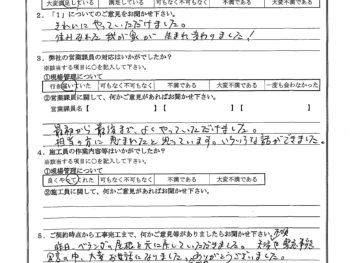 大変満足している 満足している 可も不可もなく 不満である 大変不満である
2.「1」についてのご意見をお聞かせ下さい。
きれいにやっていただけました。
生まれ変わりました!
3. 弊社の営業課員の対応はいかがでしたか?
※該当する項目に○を記入して下さい。
①現場管理について
行き届いていた 可もなく不可もなく 不満である 大変不満である 一度も会わなかった
②営業課員に関して、何かご意見があればお聞かせ下さい。
営業課員名【 】【 】
最初から最後まで、よくやっていただけました。
担当の方に恵まれたと思っています。いろいろな話ができました。
4. 施工員の作業内容等はいかがでしたか?
※該当する項目に○を記入して下さい。
①現場管理について
良くやってくれた 可もなく不可もなく 不満である 大変不満である
②施工員に関して、何かご意見があればお聞かせ下さい。
5. ご契約時点から工事完工まで、何かご意見等がありましたらお聞かせ下さい。
昨日、ベランダの屋根と元に戻していただきました。
の中、大変お世話になりました。ありがとうございました。